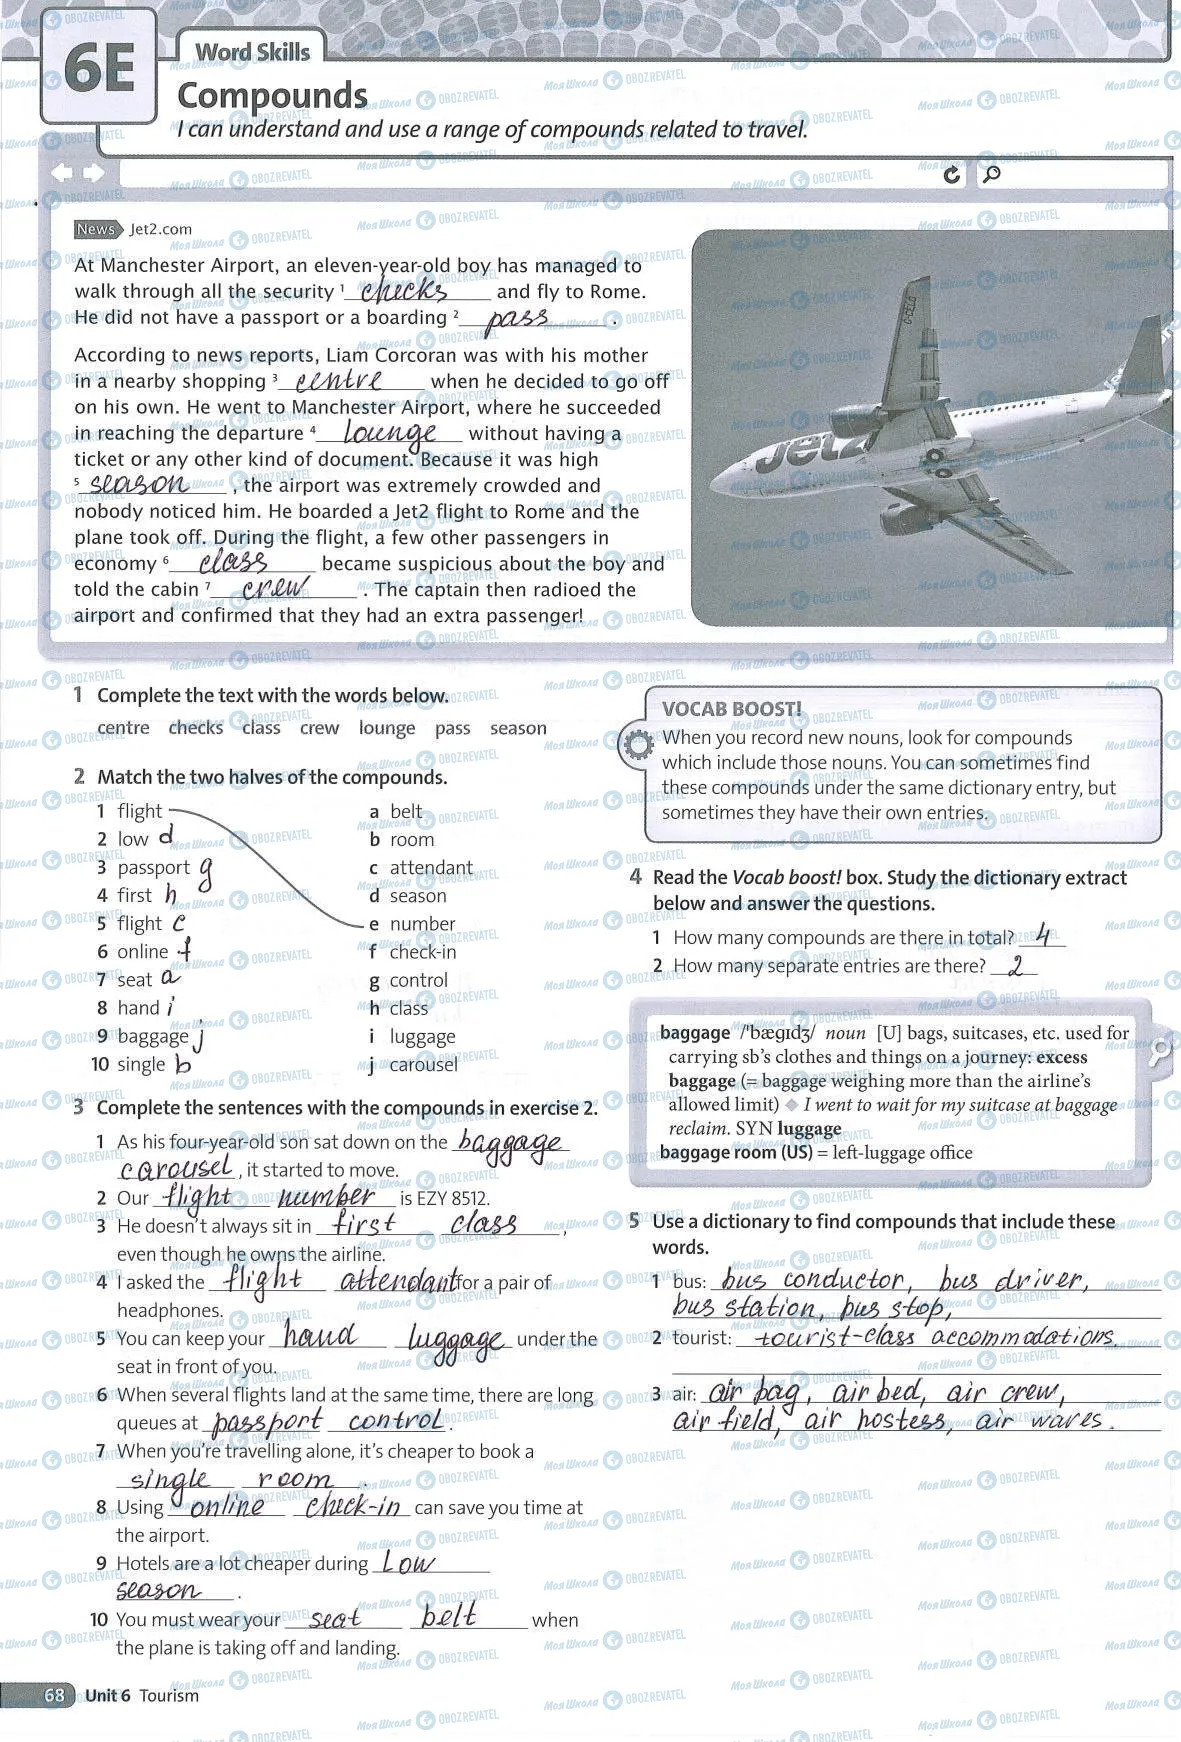 6E
Word Skills
Compounds
I can understand and use a range of compounds related to travel.
News Jet2.com
At Manchester Airport, an eleven-year-old boy has managed to
walk through all the security ¹ checks and fly to Rome.
He did not have a passport or a boarding ² pass .
According to news reports, Liam Corcoran was with his mother
in a nearby shopping ³ centre when he decided to go off
on his own. He went to Manchester Airport, where he succeeded
in reaching the departure ⁴ lounge without having a
ticket or any other kind of document. Because it was high
⁵ season , the airport was extremely crowded and
nobody noticed him. He boarded a Jet2 flight to Rome and the
plane took off. During the flight, a few other passengers in
economy ⁶ class became suspicious about the boy and
told the cabin ⁷ crew . The captain then radioed the
airport and confirmed that they had an extra passenger!
Jet2
G-CELG
1 Complete the text with the words below.
centre checks class crew lounge pass season
2 Match the two halves of the compounds.
1 flight a belt
2 low d b room
3 passport g c attendant
4 first h d season
5 flight c e number
6 online f f check-in
7 seat a g control
8 hand i h class
9 baggage j i luggage
10 single b j carousel
3 Complete the sentences with the compounds in exercise 2.
1 As his four-year-old son sat down on the baggage
carousel , it started to move.
2 Our flight number is EZY 8512.
3 He doesn't always sit in first class ,
even though he owns the airline.
4 I asked the flight attendant for a pair of
headphones.
5 You can keep your hand luggage under the
seat in front of you.
6 When several flights land at the same time, there are long
queues at passport control .
7 When you're travelling alone, it's cheaper to book a
single room .
8 Using online check-in can save you time at
the airport.
9 Hotels are a lot cheaper during Low
season .
10 You must wear your seat belt when
the plane is taking off and landing.
VOCAB BOOST!
When you record new nouns, look for compounds
which include those nouns. You can sometimes find
these compounds under the same dictionary entry, but
sometimes they have their own entries.
4 Read the Vocab boost! box. Study the dictionary extract
below and answer the questions.
1 How many compounds are there in total? 4
2 How many separate entries are there? 2
baggage /ˈbæɡɪdʒ/ noun [U] bags, suitcases, etc. used for
carrying sb's clothes and things on a journey: excess
baggage (= baggage weighing more than the airline's
allowed limit) ◆ I went to wait for my suitcase at baggage
reclaim. SYN luggage
baggage room (US) = left-luggage office
5 Use a dictionary to find compounds that include these
words.
1 bus: bus conductor, bus driver,
bus station, bus stop,
2 tourist: tourist-class accommodations.
3 air: air bag, air bed, air crew,
air field, air hostess, air waves.
68 Unit 6 Tourism
Моя Школа OBOZREVATEL